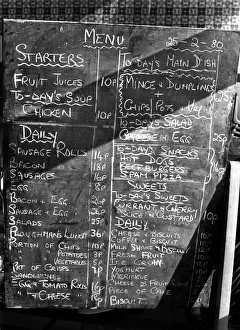 MENU
25-2-80
STARTERS
FRUIT JUICES 10p
TO-DAY'S SOUP
CHICKEN 10p
DAILY
SAUSAGE ROLLS 14p
BACON 18p
SAUSAGES 16p
EGG 8p
BACON & EGG 26p
SAUSAGE & EGG
SALADS
PLOUGHMANS LUNCH 36p
PORTION OF CHIPS 10p
POTATOES
VEGETABLES
PKT OF CRISPS
SANDWICHES
EGG & TOMATO ROLLS
" & CHEESE "
TO-DAY'S MAIN DISH
MINCE & DUMPLINGS
+
CHIPS/POTS + VEG
TO-DAYS SALAD
CHEESE & EGG
TO-DAYS SNACKS
HOT DOGS
BEEFBURGERS
SPAM PIZZA
SWEETS
TO-DAYS SWEETS
SLICE & CUSTARD 10p
DAILY
CHEESE & BISCUITS
COFFEE & BISCUIT
MILK SHAKE & BISCUIT
FRESH FRUIT
ICE CREAM
YOGHURT
MERINGUE
CHEESE OR FRUIT
BISCUIT